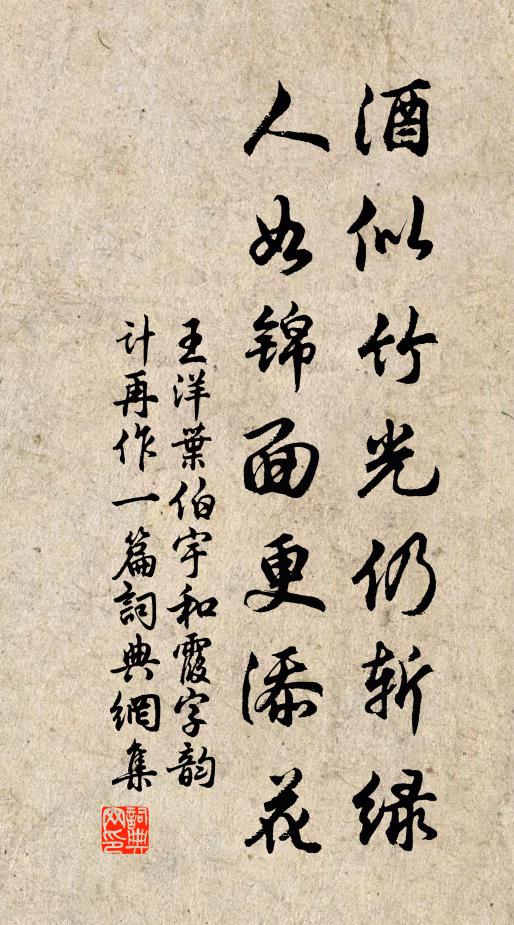 酒似竹光仍斩绿
人如锦面更添花
王洋葉伯宇和霞字韵
计再作一篇詞典網集
詞典
网印